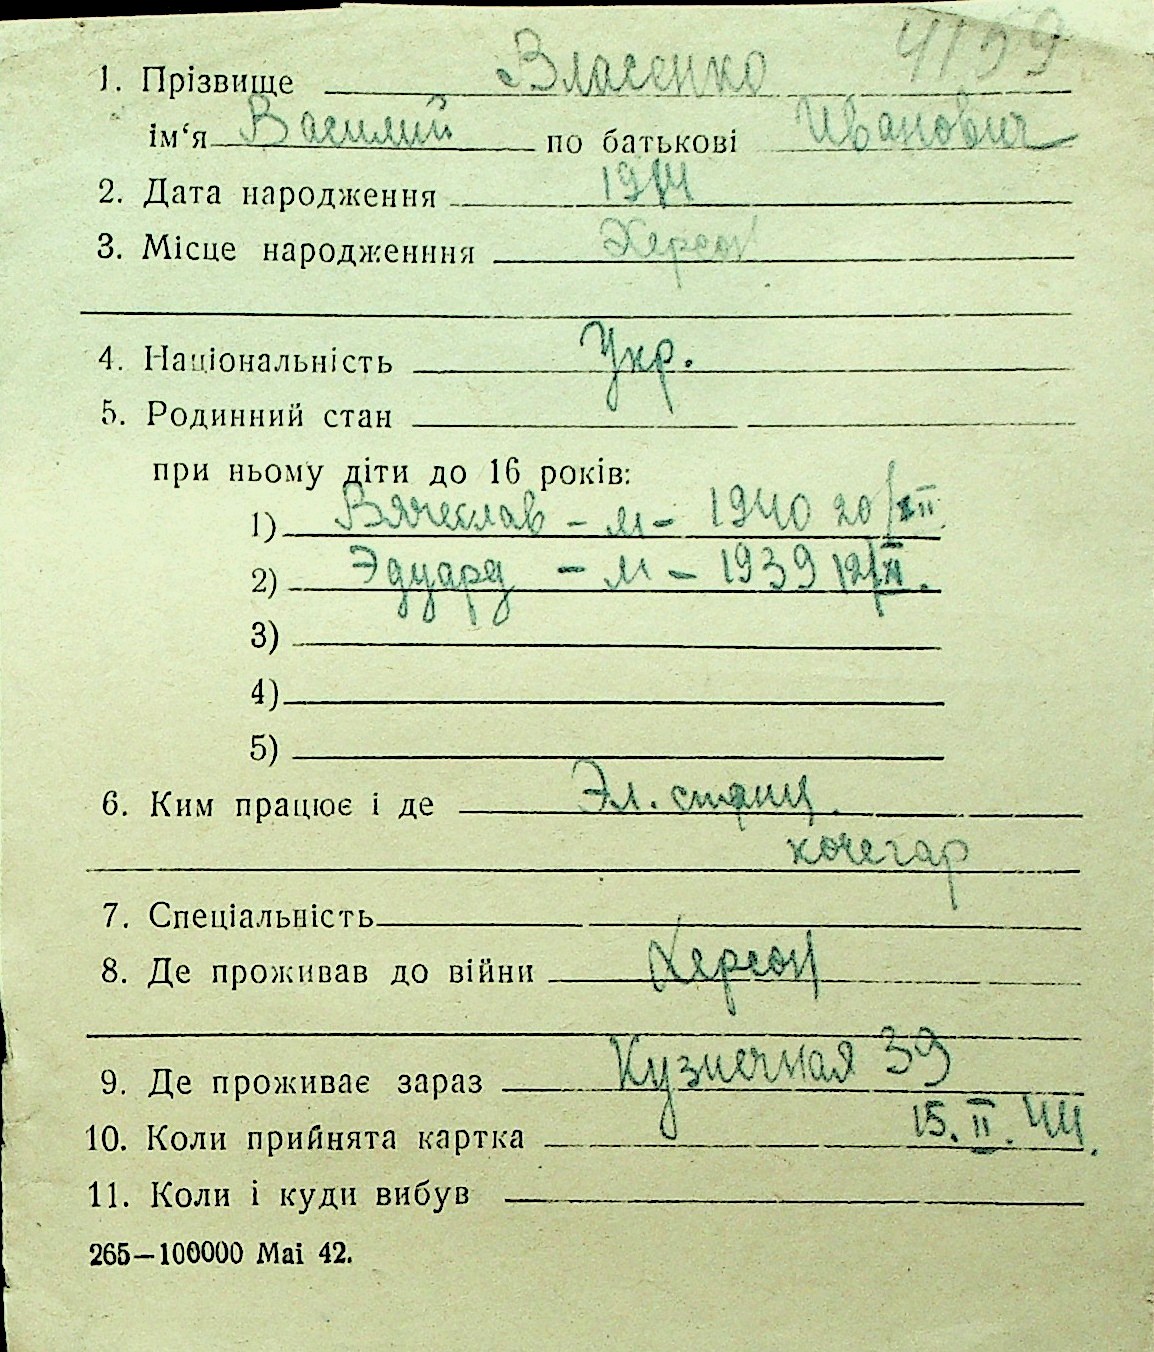 4159
1. Прізвище Власенко
ім‘я Василий по батькові Иванович
2. Дата народження 1914
3. Місце народженння Херсон
4. Національність Укр.
5. Родинний стан
при ньому діти до 16 років:
1) Вячеслав – м – 1940 20/XII
2) Эдуард – м – 1939 12/II.
3)
4)
5)
6. Ким працює і де Эл. станц.
кочегар
7. Спеціальність
8. Де проживав до війни Херсон
9. Де проживає зараз Кузнечная 39
10. Коли прийнята картка 15. II. 44.
11. Коли і куди вибув
265—100000 Mai 42.